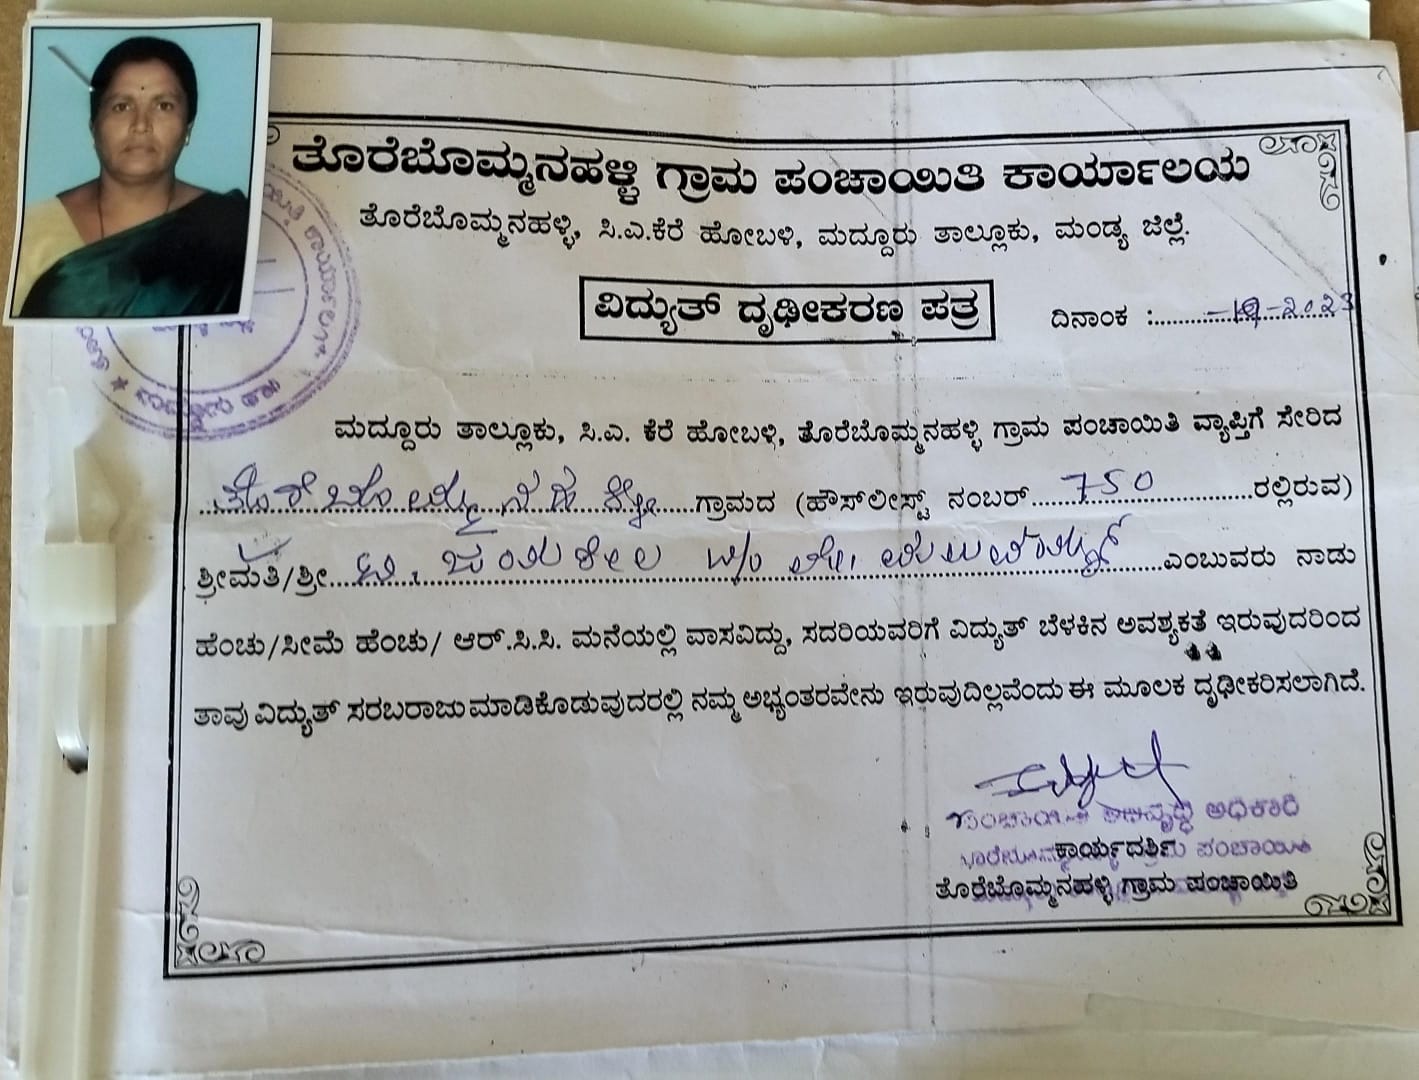 ತೊರೆಬೊಮ್ಮನಹಳ್ಳಿ ಗ್ರಾಮ ಪಂಚಾಯಿತಿ ಕಾರ್ಯಾಲಯ
ತೊರೆಬೊಮ್ಮನಹಳ್ಳಿ, ಸಿ.ಎ.ಕೆರೆ ಹೋಬಳಿ, ಮದ್ದೂರು ತಾಲ್ಲೂಕು, ಮಂಡ್ಯ ಜಿಲ್ಲೆ.
ವಿದ್ಯುತ್ ದೃಢೀಕರಣ ಪತ್ರ
ದಿನಾಂಕ :.....-2023
ಮದ್ದೂರು ತಾಲ್ಲೂಕು, ಸಿ.ಎ. ಕೆರೆ ಹೋಬಳಿ, ತೊರೆಬೊಮ್ಮನಹಳ್ಳಿ ಗ್ರಾಮ ಪಂಚಾಯಿತಿ ವ್ಯಾಪ್ತಿಗೆ ಸೇರಿದ
ತೊರೆಬೊಮ್ಮನಹಳ್ಳಿ ಗ್ರಾಮದ (ಹೌಸ್‌ಲೀಸ್ಟ್ ನಂಬರ್ 750 ರಲ್ಲಿರುವ)
ಶ್ರೀಮತಿ/ಶ್ರೀ ಜಯಶೀಲ W/o ಲೇ. ಎಂಬುವರು ನಾಡು
ಹೆಂಚು/ಸೀಮೆ ಹೆಂಚು/ ಆರ್.ಸಿ.ಸಿ. ಮನೆಯಲ್ಲಿ ವಾಸವಿದ್ದು, ಸದರಿಯವರಿಗೆ ವಿದ್ಯುತ್ ಬೆಳಕಿನ ಅವಶ್ಯಕತೆ ಇರುವುದರಿಂದ
ತಾವು ವಿದ್ಯುತ್ ಸರಬರಾಜು ಮಾಡಿಕೊಡುವುದರಲ್ಲಿ ನಮ್ಮ ಅಭ್ಯಂತರವೇನು ಇರುವುದಿಲ್ಲವೆಂದು ಈ ಮೂಲಕ ದೃಢೀಕರಿಸಲಾಗಿದೆ.
ಪಂಚಾಯಿತಿ ಅಭಿವೃದ್ಧಿ ಅಧಿಕಾರಿ
ಕಾರ್ಯದರ್ಶಿ
ಪಂಚಾಯಿತಿ
ತೊರೆಬೊಮ್ಮನಹಳ್ಳಿ ಗ್ರಾಮ ಪಂಚಾಯಿತಿ